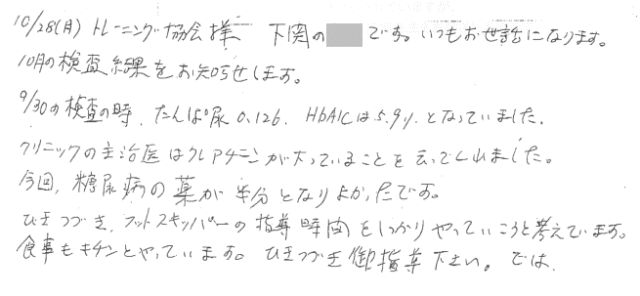 10/28(月) トレーニング協会様 下関の です。いつもお世話になります。
10月の検査結果をお知らせします。
9/30の検査の時、たんぱ尿0.126、HbA1Cは5.9%となっていました。
クリニックの主治医はクレアチニンが下っていることを云ってくれました。
今回、糖尿病の薬が半分となりよかったです。
ひきつづき、フットスキッパーの指導時間をしっかりやっていこうと考えています。
食事もキチンとやっています。ひきつづき御指導下さい。では